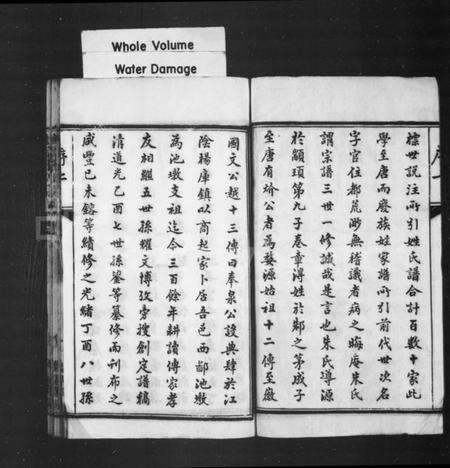 Whole Volume
Water Damage
標世說注所引姓氏譜合計百數十家此
學至唐而廢族姓家譜所引前代世次名
字官位都荒渺無稽識者病之晦庵朱氏
謂宗譜三世一修誠哉是言也朱氏導源
於顓頊第九子奉童溥姓於鄒之茅成子
至唐有瓌公者為婺源始祖十二傳至徽
國文公越十三傳曰奉泉公設典肆於江
陰楊庫鎮以商起家卜居吾邑西鄙池墩
為池墩支祖迄今三百餘年耕讀傳家孝
友相繼五世孫耀文博攷旁搜創定譜稿
清道光乙酉七世孫鎣等纂修而刊布之
咸豐己未鎔等續修之光緒丁酉八世孫